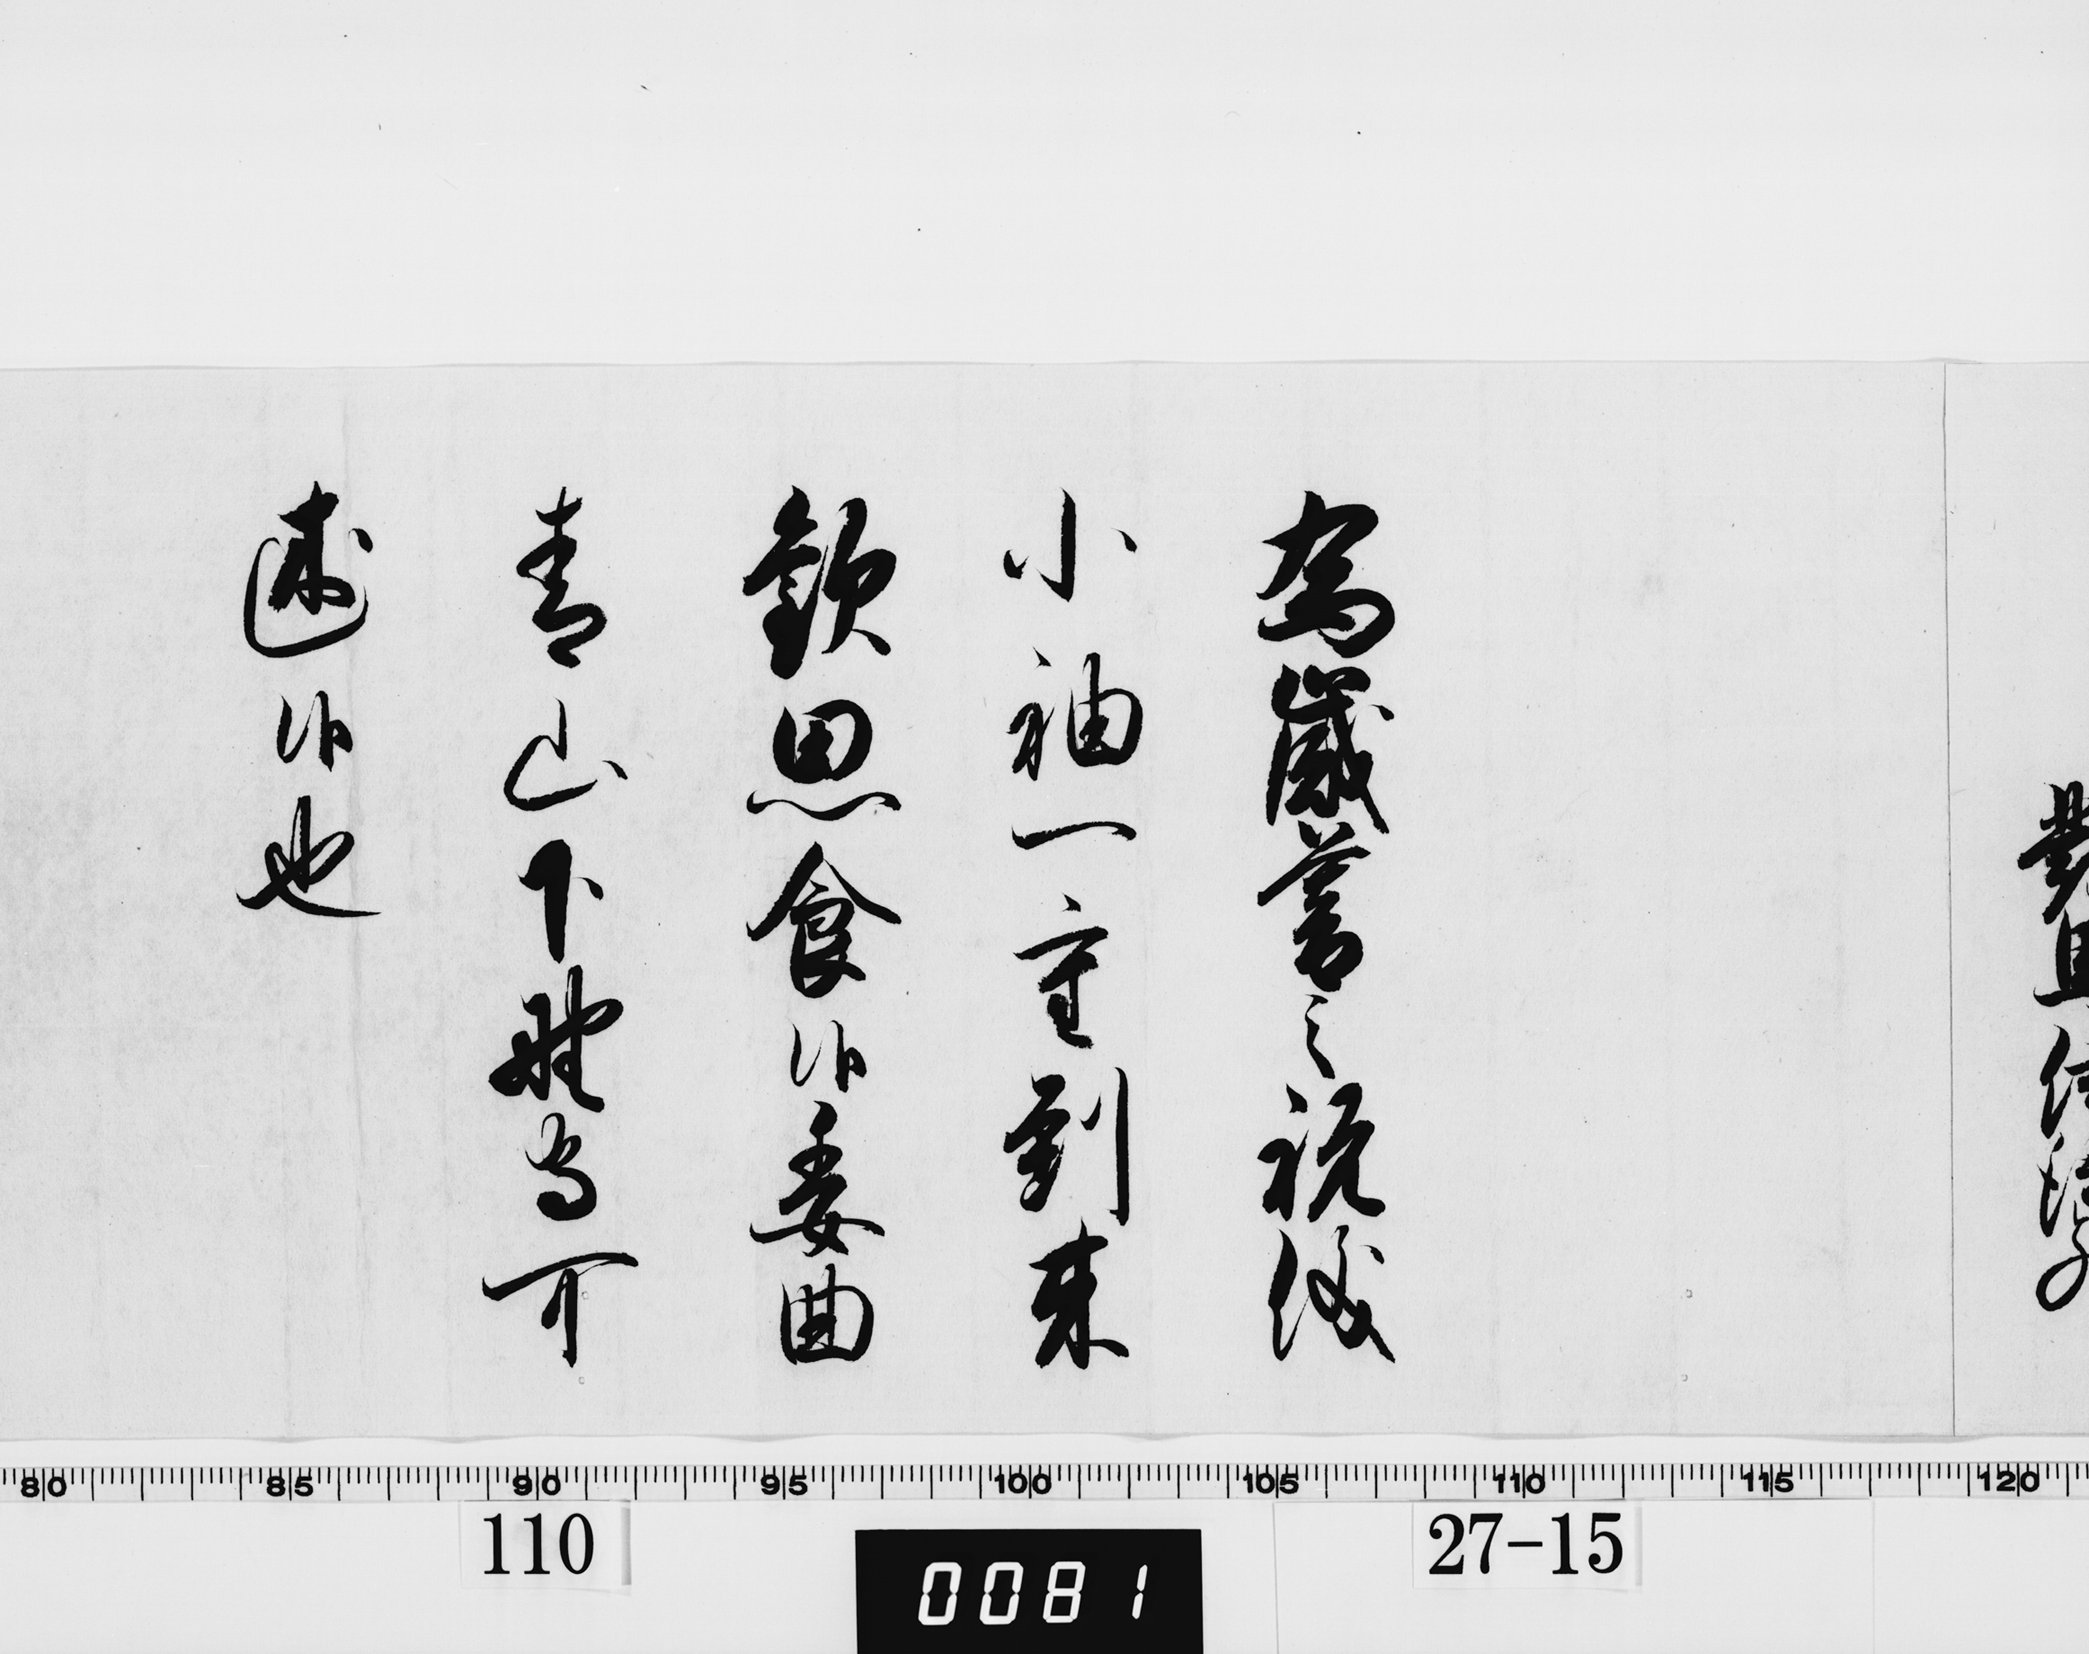 為歳暮之祝儀
小袖一重到来
歓思食候委曲
青山下野守可
述候也
80 85 90 95 100 105 110 115 120
110
0081
27-15